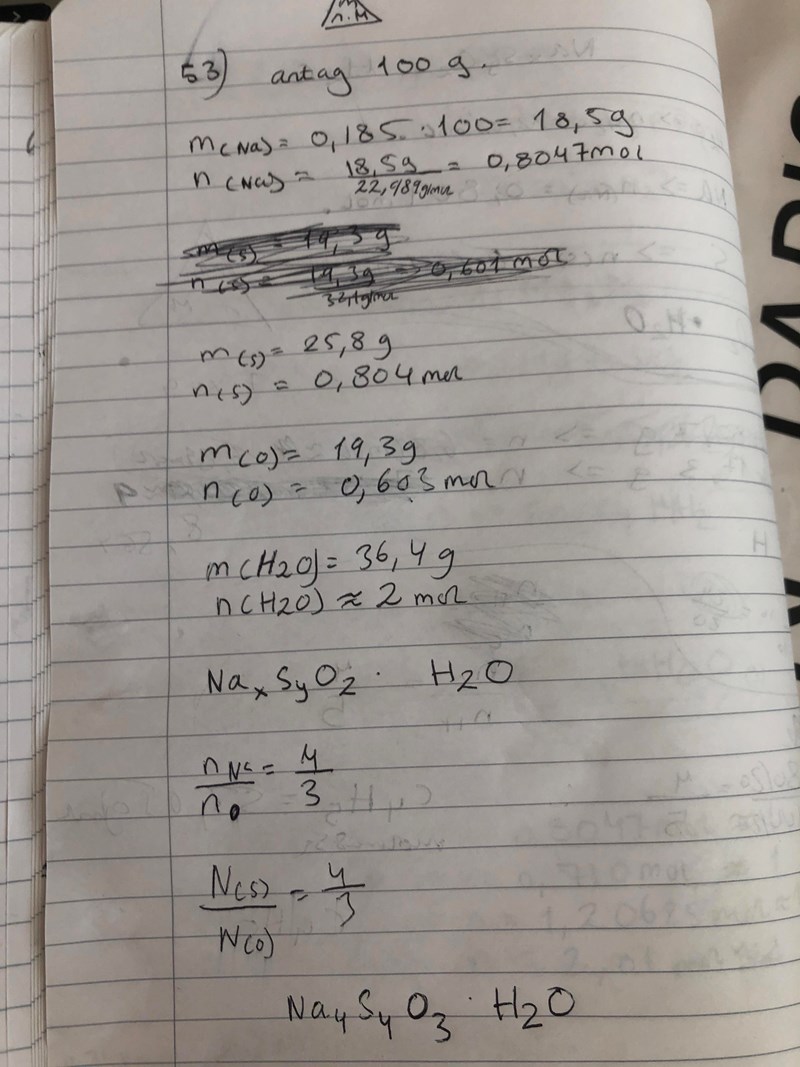 n.M
53) antag 100 g.
m(Na) = 0,185 · 100 = 18,5g
n(Na) = 18,5g / 22,989g/mol = 0,8047mol
m(s) = 19,3g
n(s) = 19,3g / 32,1g/mol = 0,601 mol
m(s) = 25,8 g
n(s) = 0,804 mol
m(O) = 19,3g
n(O) = 0,603 mol
m(H2O) = 36,4 g
n(H2O) ≈ 2 mol
NaxSyOz · H2O
nNa / nO = 4/3
N(S) / N(O) = 4/3
Na4S4O3 · H2O